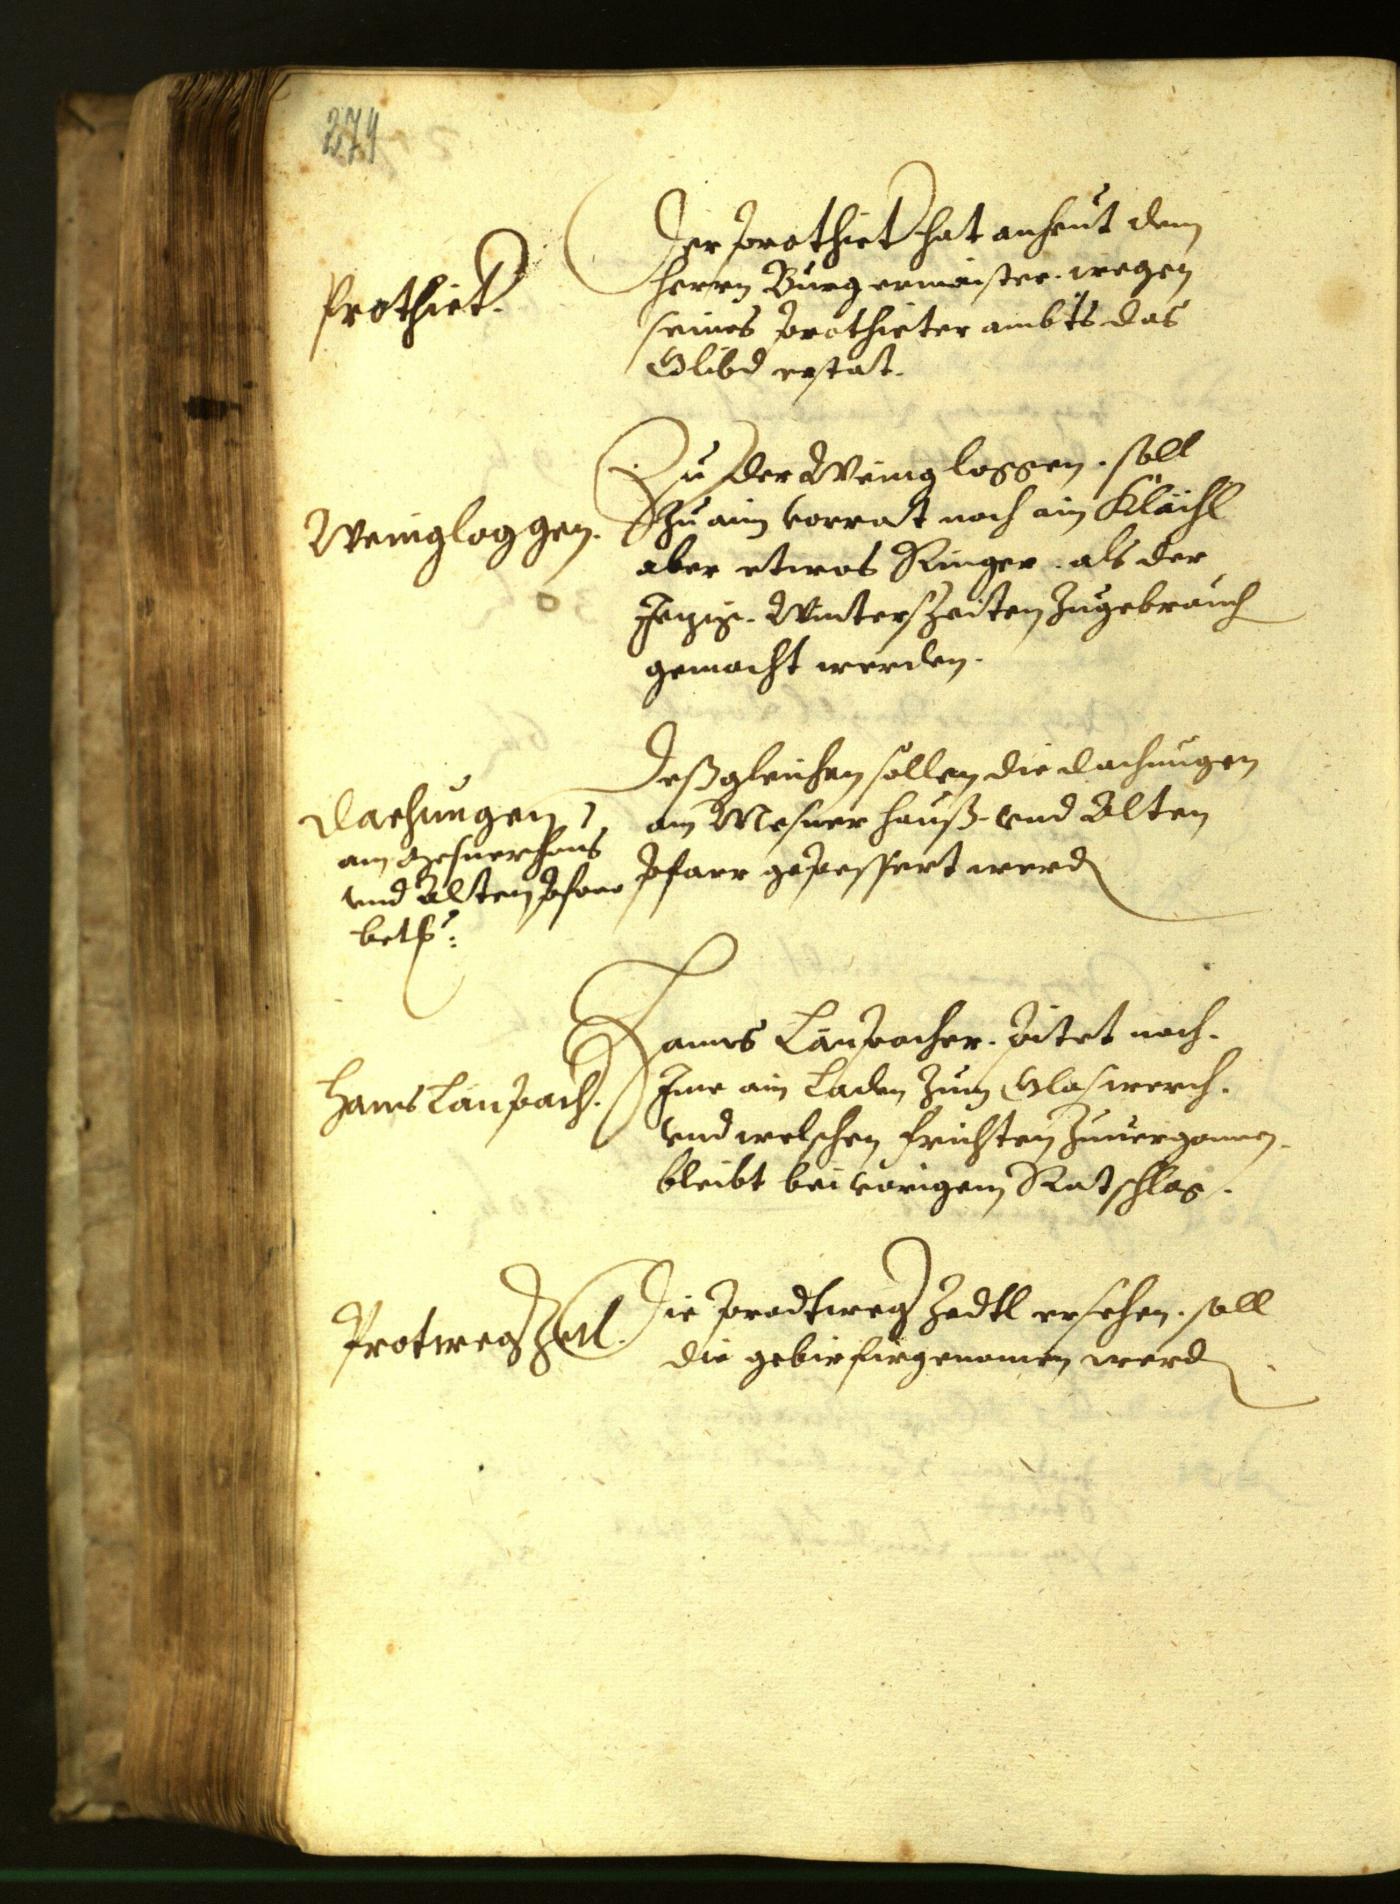 274
Prothiet.
Der Prothiet hat anheut dem
herrn Burgermaister. wegen
seines Prothieter ambts das
Glibd erstat.
Weingloggen.
Zu der Weingloggen. soll
zu aim vorrat noch ain Klächl
aber etwas Ringer. als der
Jezig. Winterszeiten zugebrauch
gemacht werden.
Dachungen
am Mesnerhaus
vnd Alten Pfarr
betr:
Deßgleichen sollen die dachungen
am Mesner hauß. vnd Alten
Pfarr gepessert werd
Hanns Laupach.
Hanns Laupacher. Pitet noch.
Ime ain Laden zum Glaswerch.
vnd welschen frichten zuuergonnen.
bleibt bei vorigem Ratschlag.
Protweg Zetl.
Die Prodtweg Zedtl ersehen. soll
die gebir firgenomen werd